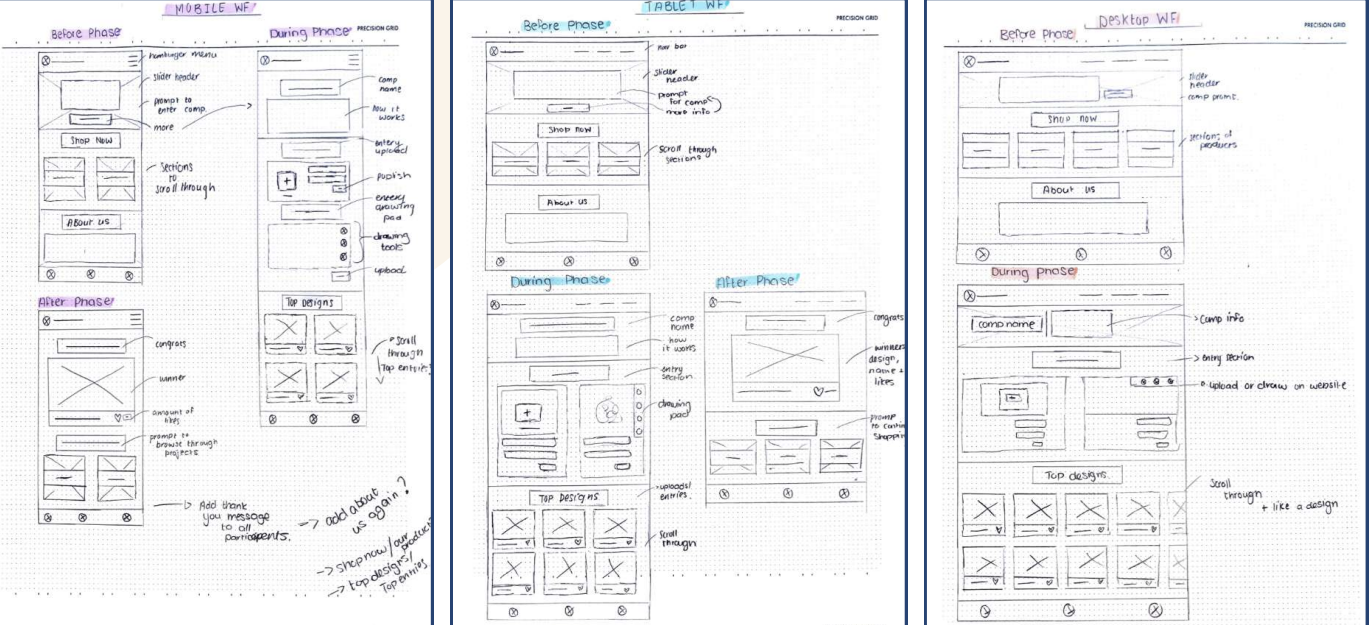 MOBILE WF
Before Phase
hamburger menu
slider header
prompt to
enter comp.
more
Shop Now
Sections
to
scroll through
About us
During Phase
PRECISION GRID
comp
name
how it
works
entery
upload
publish
entery
drawing
pad
drawing
tools
upload
Top Designs
scroll
through
Top entries
After Phase
congrats
winner
amount of
likes
prompt to
browse through
projects
Add thank
you message
to all
participents.
-> add about
us again?
-> shop now / our
products
-> top designs /
Top entries
TABLET WF
PRECISION GRID
Before Phase
nav bar
slider
header
prompt
for comp
more info
Shop now
Scroll through
sections
About us
During Phase
comp
name
how
it works
entry
section
drawing
pad
Top Designs
uploads/
entries.
Scroll
through
After Phase
congrats
winners
design,
name +
likes
Desktop WF
PRECISION GRID
Before Phase
slider
header
comp promt.
Shop now
sections of
products
About us
During phase
comp name
comp info
entry section
upload or draw on website
Top designs
Scroll
through
+ like a design